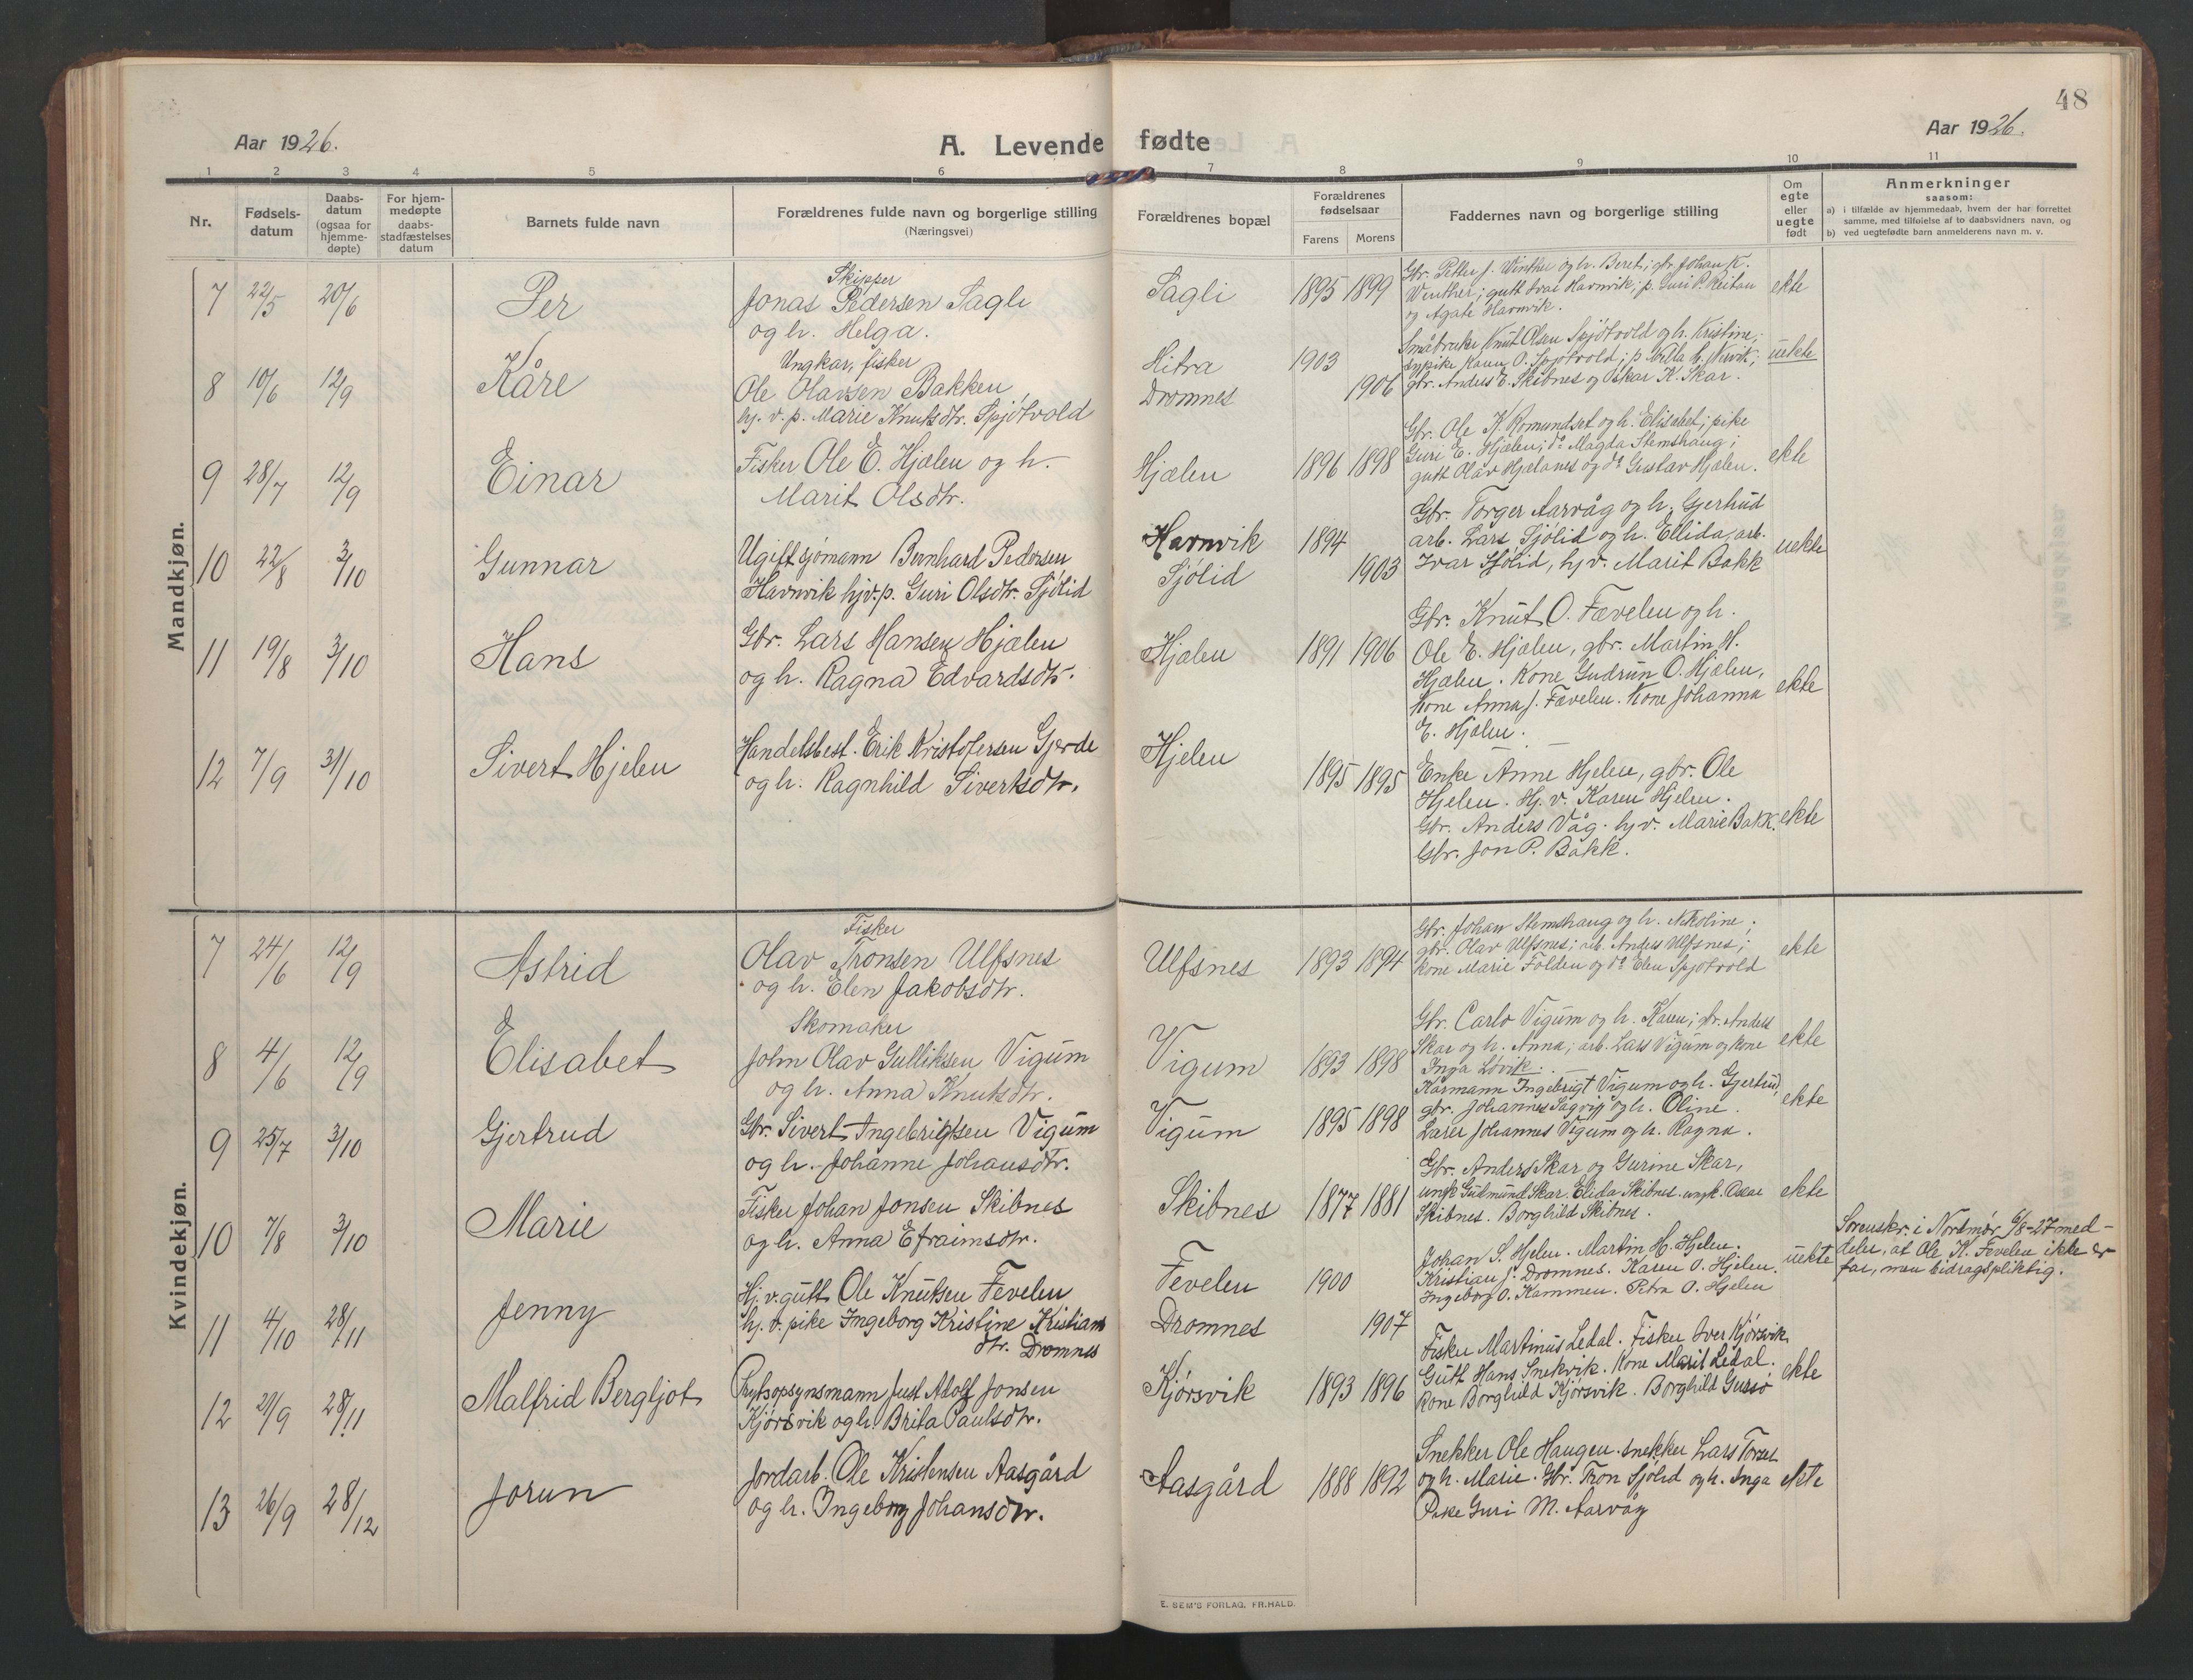 48
Aar 1926.
A. Levende fødte
Aar 1926.
1 2 3 4 5 6 7 8 9 10 11
Nr.
Fødsels-
datum
Daabs-
datum
(ogsaa for
hjemme-
døpte)
For hjem-
medøpte
daabs-
stadfæstelses
datum
Barnets fulde navn
Forældrenes fulde navn og borgerlige stilling
(Næringsvei)
Forældrenes bopæl
Forældrenes
fødselsaar
Farens Morens
Faddernes navn og borgerlige stilling
Om
egte
eller
uegte
født
Anmerkninger
saasom:
a) i tilfælde av hjemmedaab, hvem der har forrettet
samme, med tilføielse af to daabsvidners navn, og
b) ved uegtefødte barn anmelderens navn m. v.
Mandkjøn.
7 22/5 20/6 Per
Skipper
Jonas Pedersen Sagli
og h. Helga.
Sagli 1895 1899
Gbr. Petter J. Winther og h. Beret; gbr. Johan K.
Winther; gutt Ivar Havnvik; p. Guri P. Reitan
og Agate Havnvik.
ekte
8 10/6 12/9 Kåre
Ungkar, fisker
Ole Olavsen Bakken,
hj. v. p. Marie Knutsdtr. Spjøtvold
Hitra 1903
Dromnes 1906
Småbruker Knut Olsen Spjøtvold og h. Kristine;
Karen O. Spjøtvold; p.
gbr. Anders E. Skibnes og Oskar K. Skar.
uekte
9 28/7 12/9 Einar
Fisker Ole E. Hjælen og h.
Marit Olsdtr.
Hjælen 1896 1898
Gbr. Ole K. Romundset og h. Elisabet; pike
Guri E. Hjælen; do Magda Stemshaug;
gutt Olav Hjælanes og do Gustav Hjælen.
ekte
10 22/8 3/10 Gunnar
Ugift sjømann Bernhard Pedersen
Havnvik hjv. p. Guri Olsdtr. Sjølid
Havnvik 1894
Sjølid 1903
Gbr. Torger Aarvåg og h. Gjertrud
arb. Lars Sjølid og h. Ellida, arb.
Ivar Sjølid, hj v. Marit Bakk
uekte
11 19/8 3/10 Hans
Gbr. Lars Hansen Hjælen
og h. Ragna Edvardsdtr.
Hjælen 1891 1906
Gbr. Knut O. Fævelen og h.
Ole E. Hjælen, gbr. Martin H.
Hjælen. Kone Gudrun O. Hjælen,
Kone Anna J. Fævelen. Kone Johanna
E. Hjælen.
ekte
12 7/9 31/10 Sivert Hjelen
Handelsbest. Erik Kristofersen Gjerde
og h. Ragnhild Sivertsdtr.
Hjelen 1895 1895
Enke Anne Hjelen, gbr. Ole
Hjelen. Hj. v. Karen Hjelen.
Gbr. Anders Våg. hj v. Marie Bakk.
Gbr. Jon P. Bakk.
ekte
Kvindekjøn.
7 24/6 12/9 Astrid
Fisker
Olav Tronsen Ulfsnes
og h. Elen Jakobsdtr.
Ulfsnes 1893 1894
Gbr. Johan Stemshaug og h. Nikoline;
gbr. Olav Ulfsnes; arb. Anders Ulfsnes;
kone Marie Folden og do Elen Spjøtvold
ekte
8 4/6 12/9 Elisabet
Skomaker
John Olav Gulliksen Vigum
og h. Anna Knutsdtr.
Vigum 1893 1898
Gbr. Carlo Vigum og h. Karen; gbr. Anders
Skar og h. Anna; arb. Lars Vigum og kone
Inga Løvik.
ekte
9 25/7 3/10 Gjertrud
Gbr. Sivert Ingebrigtsen Vigum
og h. Johanne Johansdtr.
Vigum 1895 1898
Kårmann Ingebrigt Vigum og h. Gjertrud,
gbr. Johannes Sagvik og h. Oline.
Lærer Johannes Vigum og h. Ragna.
ekte
10 7/8 3/10 Marie
Fisker Johan Jonsen Skibnes
og h. Anna Efraimsdtr.
Skibnes 1877 1881
Gbr. Anders Skar og Gurine Skar,
ungk Gudmund Skar. Elida Skibnes. ungk. Oskar
Skibnes. Borghild Skibnes.
ekte
11 4/10 28/11 Jenny
Hj. v. gutt Ole Knutsen Fevelen
hj. v. pike Ingeborg Kristine Kristians
dtr. Dromnes
Fevelen 1900
Dromnes 1907
Johan S. Hjelen. Martin H. Hjelen.
Kristian J. Dromnes. Karen O. Hjelen.
Ingeborg O. Kammen. Petra O. Hjelen
uekte
Sorenskr. i Nordmør 6/8-27 med-
deler, at Ole K. Fevelen ikke er
far, men bidragspliktig.
12 29/9 28/11 Malfrid Bergljot
Just Adolf Jonsen
Kjørsvik og h. Brita Paulsdtr.
Kjørsvik 1893 1896
Fisker Martinus Ledal. Fisker Iver Kjørsvik
Gutt Hans Snekvik. Kone Marit Ledal.
Kone Borghild Kjørsvik. Borghild Gursø
ekte
13 26/9 28/12 Jorun
Jordarb. Ole Kristensen Aasgård
og h. Ingeborg Johansdtr.
Aasgård 1888 1892
Snekker Ole Haugen. snekker Lars
og h. Marie. Gbr. Tron Sjølid og h. Inga
Pike Guri M. Aarvåg
ekte
E. SEM'S FORLAG, FR.HALD.